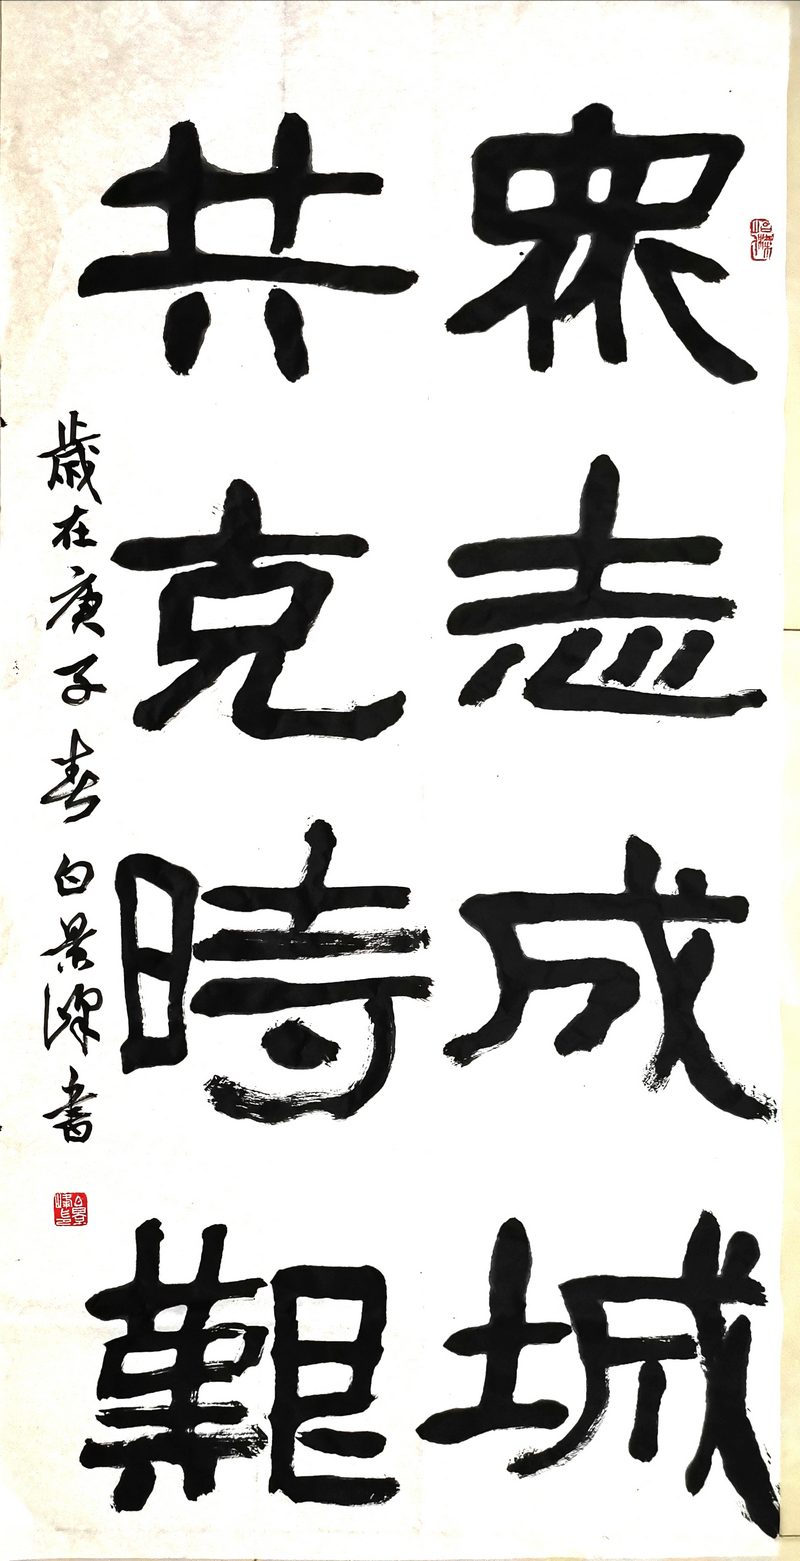 眾志成城
共克時艱
歲在庚子春白景峰書